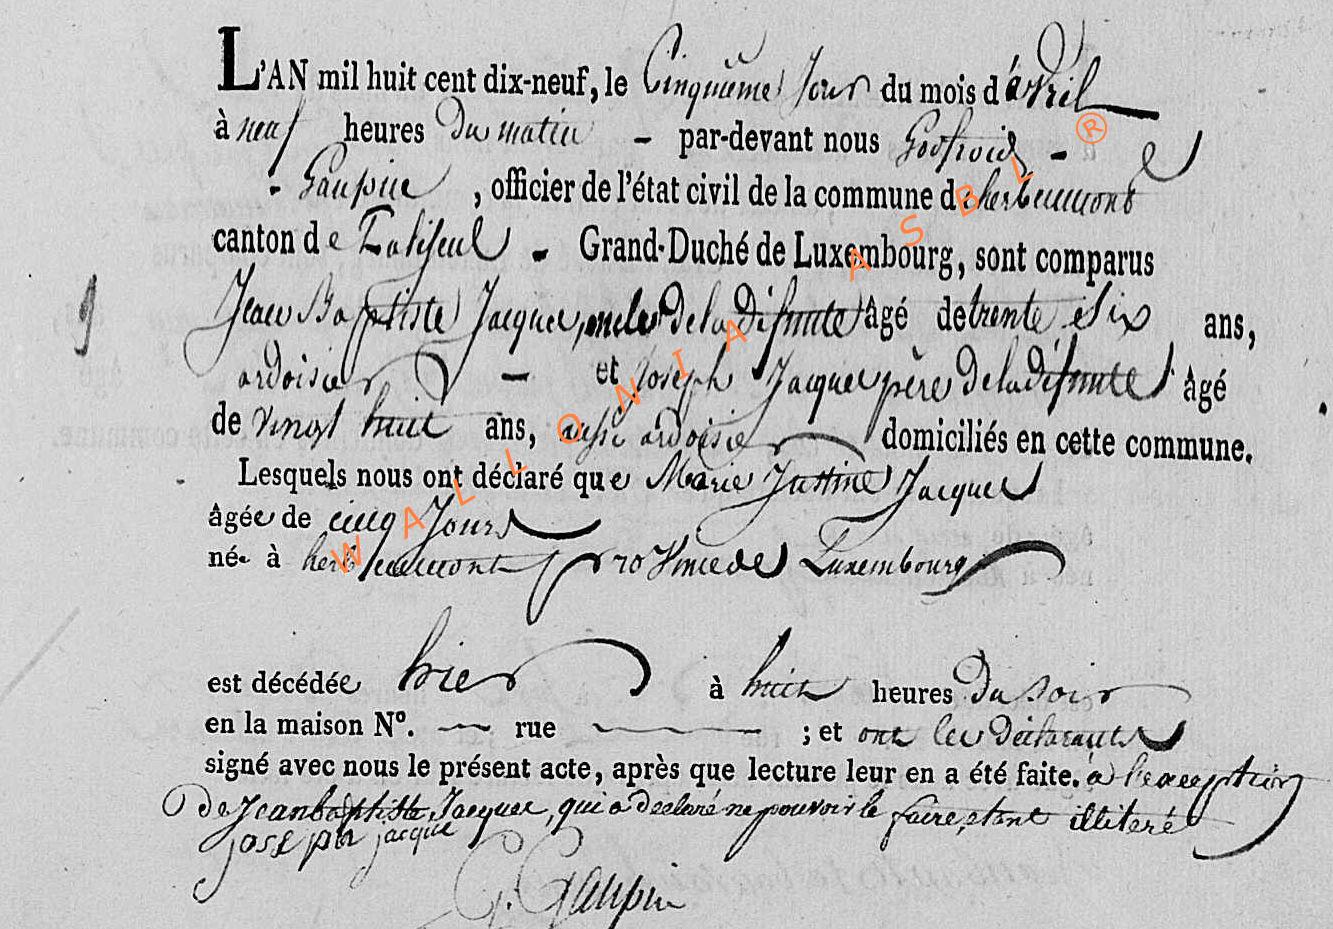 L'AN mil huit cent dix-neuf, le Cinquième Jour du mois d'avril
à neuf heures Du matin - par-devant nous Godfroid -
- Gaupin, officier de l'état civil de la commune de herbeumont
canton de Paliseul - Grand-Duché de Luxembourg, sont comparus
9 Jean Baptiste Jacque, oncle De la Défunte âgé de trente Six ans,
ardoisier - et Joseph Jacque père De la Défunte âgé
de vingt huit ans, aussi ardoisier domiciliés en cette commune.
Lesquels nous ont déclaré que Marie Justine Jacque
âgée de cinq Jours
née à herbeumont province de Luxembourg
est décédée hier à huit heures Du soir
en la maison N°. — rue — ; et ont les Déclarants
signé avec nous le présent acte, après que lecture leur en a été faite. à l'exception
De Jean baptiste Jacque, qui a declaré ne pouvoir le faire, etant illiteré
joseph jacque
G. Gaupin
WALLONIA ASBL ®